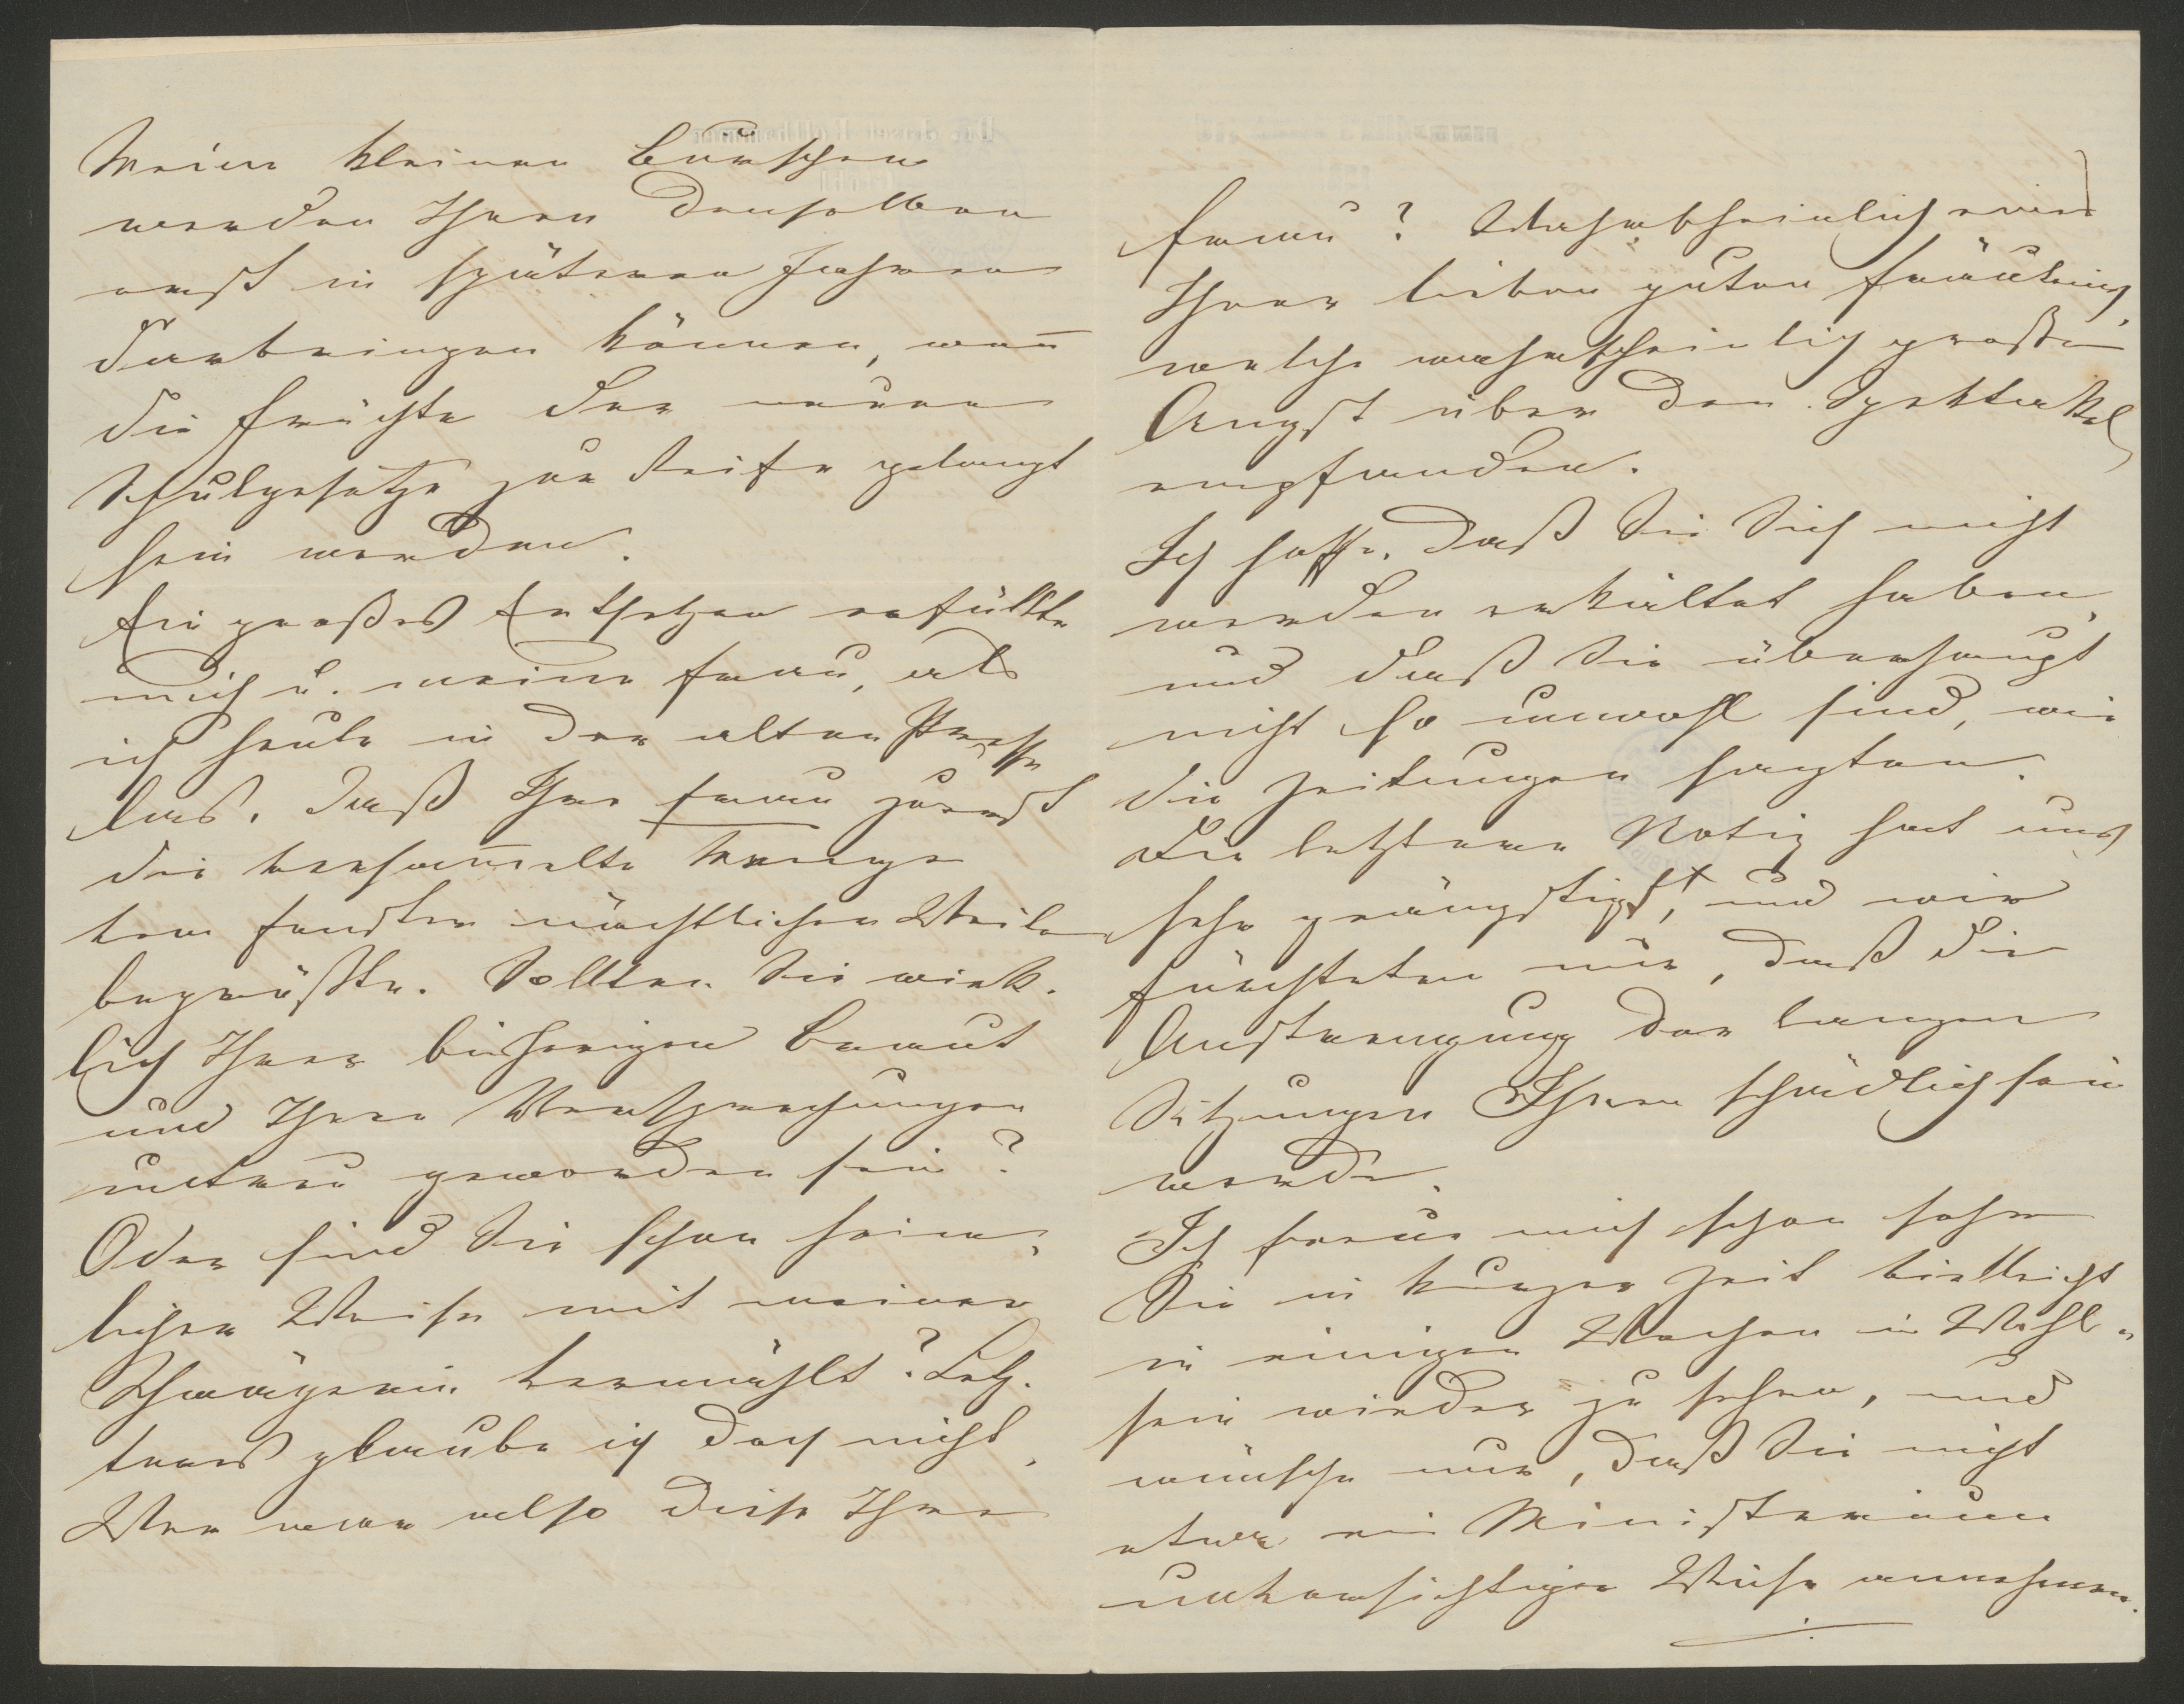 Meine kleinen Burschen
werden Ihnen denselben
erst in späteren Jahren
darbringen können, wenn
die Früchte der neuen
Schulgesetze zur Reife gelangt
sein werden.
Ein großes Entsetzen erfüllte
mich u. meine Frau, als
ich heute in der alten Presse
las, daß Ihre Frau zuerst
die versammelte Menge
vom Fenster nächtlicher Weile
begrüßte. Sollten Sie wirk-
lich Ihrer bisherigen Braut
und Ihren Versprechungen
untreu geworden sein?
Oder sind Sie schon heim-
licher Weise mit meiner
Schwägerin vermählt? Letz-
teres glaube ich doch nicht.
Wer war also diese Ihre
Frau? Wahrscheinlich eine
Ihrer lieben guten Fräuleins,
welche wahrscheinlich große
Angst über den Spektakel
empfanden.
Ich hoffe, daß Sie sich nicht
werden erkältet haben,
und daß Sie überhaupt
nicht so unwohl sind, wie
die Zeitungen sagten.
Die letztere Notiz hat uns
sehr geängstigt, und wir
fürchteten nur, daß die
Anstrengung der langen
Sitzungen Ihnen schädlich sein
werde.
Ich freue mich schon sehr
Sie in kurzer Zeit vielleicht
in einigen Wochen in Wohl-
sein wieder zu sehen, und
wünsche nur, daß Sie nicht
etwa ein Ministerium
unvorsichtiger Weise annehmen.